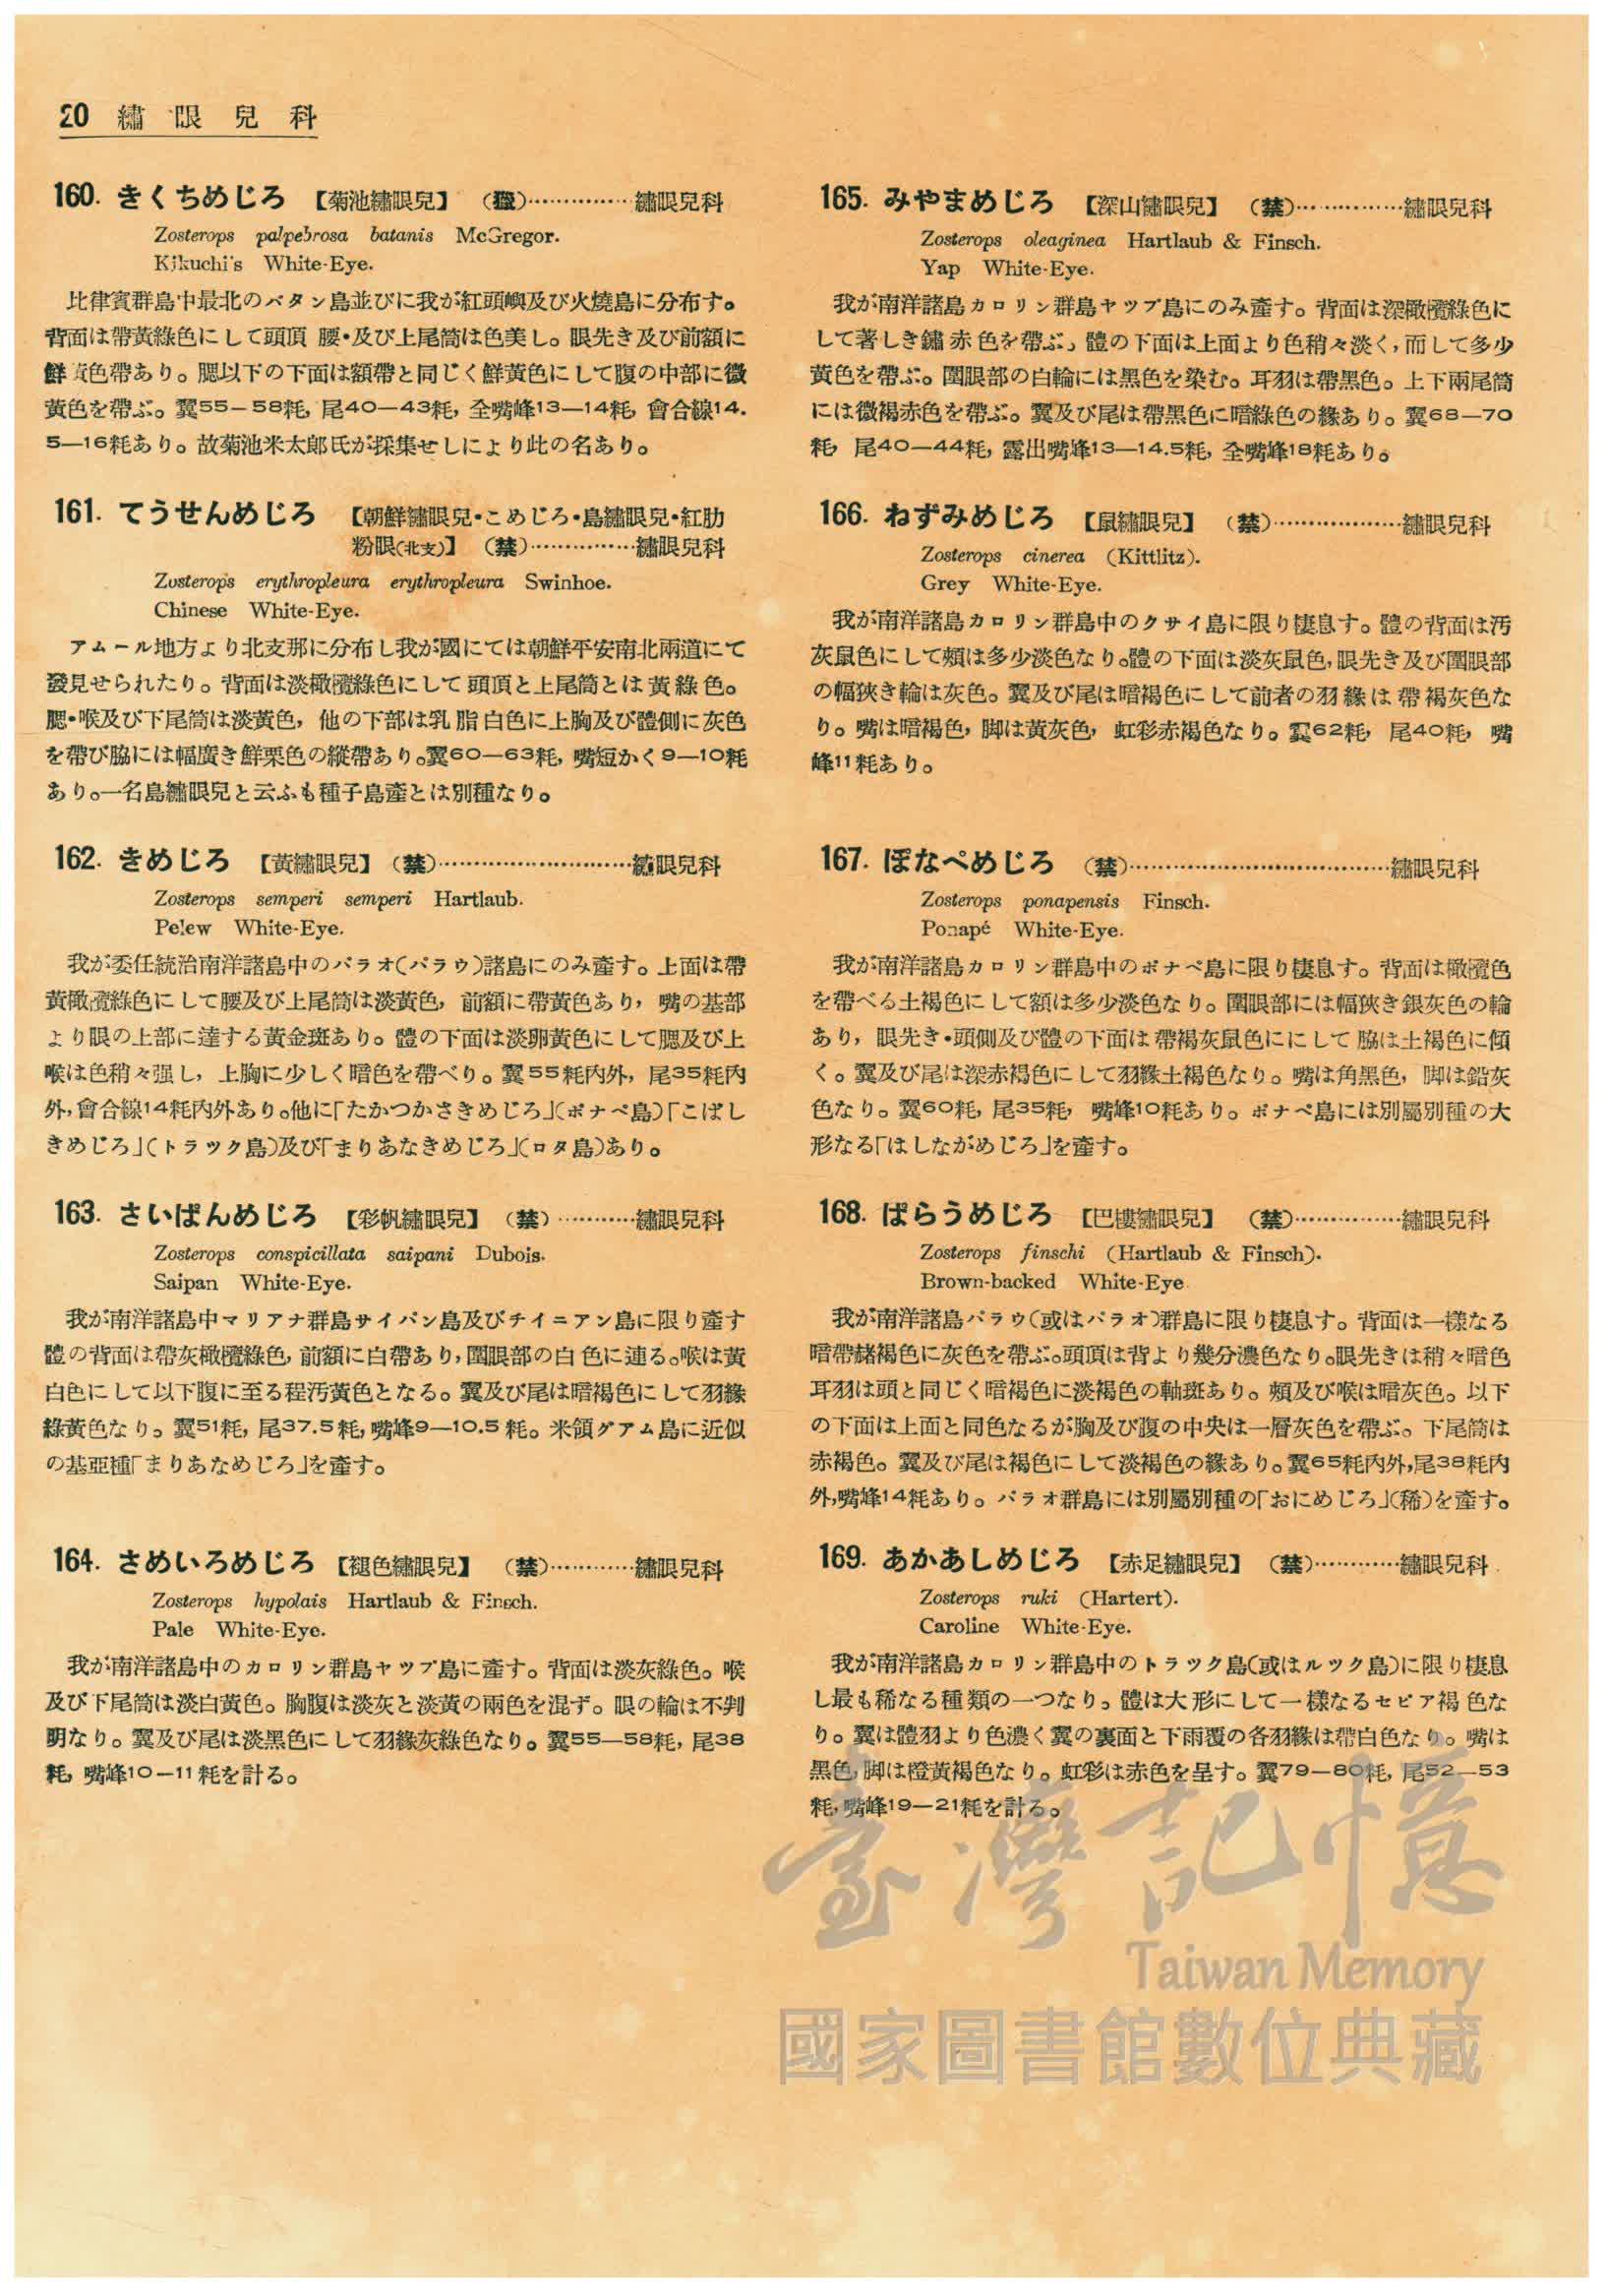 20 繡眼兒科
160. きくちめじろ 【菊池繡眼兒】 (獵)…………… 繡眼兒科
Zosterops palpebrosa batanis McGregor.
Kikuchi's White-Eye.
比律賓群島中最北のバタン島並びに我が紅頭嶼及び火燒島に分布す。
背面は帶黃綠色にして頭頂 腰・及び上尾筒は色美し。眼先き及び前額に
鮮黃色帶あり。腮以下の下面は額帶と同じく鮮黃色にして腹の中部に微
黃色を帶ぶ。翼55-58粍, 尾40—43粍, 全嘴峰13—14粍, 會合線14.
5—16粍あり。故菊池米太郎氏が採集せしにより此の名あり。
161. てうせんめじろ 【朝鮮繡眼兒・こめじろ・島繡眼兒・紅肋
粉眼(北支)】 (禁)……………繡眼兒科
Zosterops erythropleura erythropleura Swinhoe.
Chinese White-Eye.
アムール地方より北支那に分布し我が國にては朝鮮平安南北兩道にて
發見せられたり。背面は淡橄欖綠色にして頭頂と上尾筒とは黃綠色。
腮・喉及び下尾筒は淡黃色, 他の下部は乳脂白色に上胸及び體側に灰色
を帶び脇には幅廣き鮮栗色の縱帶あり。翼60—63粍, 嘴短かく9—10粍
あり。一名島繡眼兒と云ふも種子島產とは別種なり。
162. きめじろ 【黃繡眼兒】 (禁)………………………繡眼兒科
Zosterops semperi semperi Hartlaub.
Pelew White-Eye.
我が委任統治南洋諸島中のパラオ(パラウ)諸島にのみ產す。上面は帶
黃橄欖綠色にして腰及び上尾筒は淡黃色, 前額に帶黃色あり, 嘴の基部
より眼の上部に達する黃金斑あり。體の下面は淡卵黃色にして腮及び上
喉は色稍々强し, 上胸に少しく暗色を帶べり。翼55粍內外, 尾35粍內
外, 會合線14粍內外あり。他に「たかつかさきめじろ」(ポナペ島)「こばし
きめじろ」(トラック島)及び「まりあなきめじろ」(ロタ島)あり。
163. さいぱんめじろ 【彩帆繡眼兒】 (禁) …………繡眼兒科
Zosterops conspicillata saipani Dubois.
Saipan White-Eye.
我が南洋諸島中マリアナ群島サイパン島及びチイニアン島に限り產す
體の背面は帶灰橄欖綠色, 前額に白帶あり, 圍眼部の白色に連る。喉は黃
白色にして以下腹に至る程汚黃色となる。翼及び尾は暗褐色にして羽緣
綠黃色なり。翼51粍, 尾37.5粍, 嘴峰9—10.5粍。米領グアム島に近似
の基亞種「まりあなめじろ」を產す。
164. さめいろめじろ 【褪色繡眼兒】 (禁)…………繡眼兒科
Zosterops hypolais Hartlaub & Finsch.
Pale White-Eye.
我が南洋諸島中のカロリン群島ヤップ島に產す。背面は淡灰綠色。喉
及び下尾筒は淡白黃色。胸腹は淡灰と淡黃の兩色を混ず。眼の輪は不判
明なり。翼及び尾は淡黑色にして羽緣灰綠色なり。翼55—58粍, 尾38
粍, 嘴峰10-11粍を計る。
165. みやまめじろ 【深山繡眼兒】 (禁)……………繡眼兒科
Zosterops oleaginea Hartlaub & Finsch.
Yap White-Eye.
我が南洋諸島カロリン群島ヤップ島にのみ產す。背面は深橄欖綠色に
して著しき鏽赤色を帶ぶ。體の下面は上面より色稍々淡く, 而して多少
黃色を帶ぶ。圍眼部の白輪には黑色を染む。耳羽は帶黑色。上下兩尾筒
には微褐赤色を帶ぶ。翼及び尾は帶黑色に暗綠色の緣あり。翼68—70
粍, 尾40—44粍, 露出嘴峰13—14.5粍, 全嘴峰18粍あり。
166. ねずみめじろ 【鼠繡眼兒】 (禁)………………繡眼兒科
Zosterops cinerea (Kittlitz).
Grey White-Eye.
我が南洋諸島カロリン群島中のクサイ島に限り棲息す。體の背面は汚
灰鼠色にして頰は多少淡色なり。體の下面は淡灰鼠色, 眼先き及び圍眼部
の幅狹き輪は灰色。翼及び尾は暗褐色にして前者の羽緣は帶褐灰色な
り。嘴は暗褐色, 脚は黃灰色, 虹彩赤褐色なり。翼62粍, 尾40粍, 嘴
峰11粍あり。
167. ぽなぺめじろ (禁)………………………………繡眼兒科
Zosterops ponapensis Finsch.
Ponapé White-Eye.
我が南洋諸島カロリン群島中のポナペ島に限り棲息す。背面は橄欖色
を帶べる土褐色にして額は多少淡色なり。圍眼部には幅狹き銀灰色の輪
あり, 眼先き・頭側及び體の下面は帶褐灰鼠色ににして脇は土褐色に傾
く。翼及び尾は深赤褐色にして羽緣土褐色なり。嘴は角黑色, 脚は鉛灰
色なり。翼60粍, 尾35粍, 嘴峰10粍あり。ポナペ島には別屬別種の大
形なる「はしながめじろ」を產す。
168. ぱらうめじろ 【巴摟繡眼兒】 (禁)……………繡眼兒科
Zosterops finschi (Hartlaub & Finsch).
Brown-backed White-Eye
我が南洋諸島パラウ(或はパラオ)群島に限り棲息す。背面は一樣なる
暗帶赭褐色に灰色を帶ぶ。頭頂は背より幾分濃色なり。眼先きは稍々暗色
耳羽は頭と同じく暗褐色に淡褐色の軸斑あり。頰及び喉は暗灰色。以下
の下面は上面と同色なるが胸及び腹の中央は一層灰色を帶ぶ。下尾筒は
赤褐色。翼及び尾は褐色にして淡褐色の緣あり。翼65粍內外, 尾38粍內
外, 嘴峰14粍あり。パラオ群島には別屬別種の「おにめじろ」(稀)を產す。
169. あかあしめじろ 【赤足繡眼兒】 (禁)…………繡眼兒科
Zosterops ruki (Hartert).
Caroline White-Eye.
我が南洋諸島カロリン群島中のトラック島(或はルック島)に限り棲息
し最も稀なる種類の一つなり。體は大形にして一樣なるセピア褐色な
り。翼は體羽より色濃く翼の裏面と下雨覆の各羽緣は帶白色なり。嘴は
黑色, 脚は橙黃褐色なり。虹彩は赤色を呈す。翼79—80粍, 尾52—53
粍, 嘴峰19—21粍を計る。
臺灣記憶
Taiwan Memory
國家圖書館數位典藏